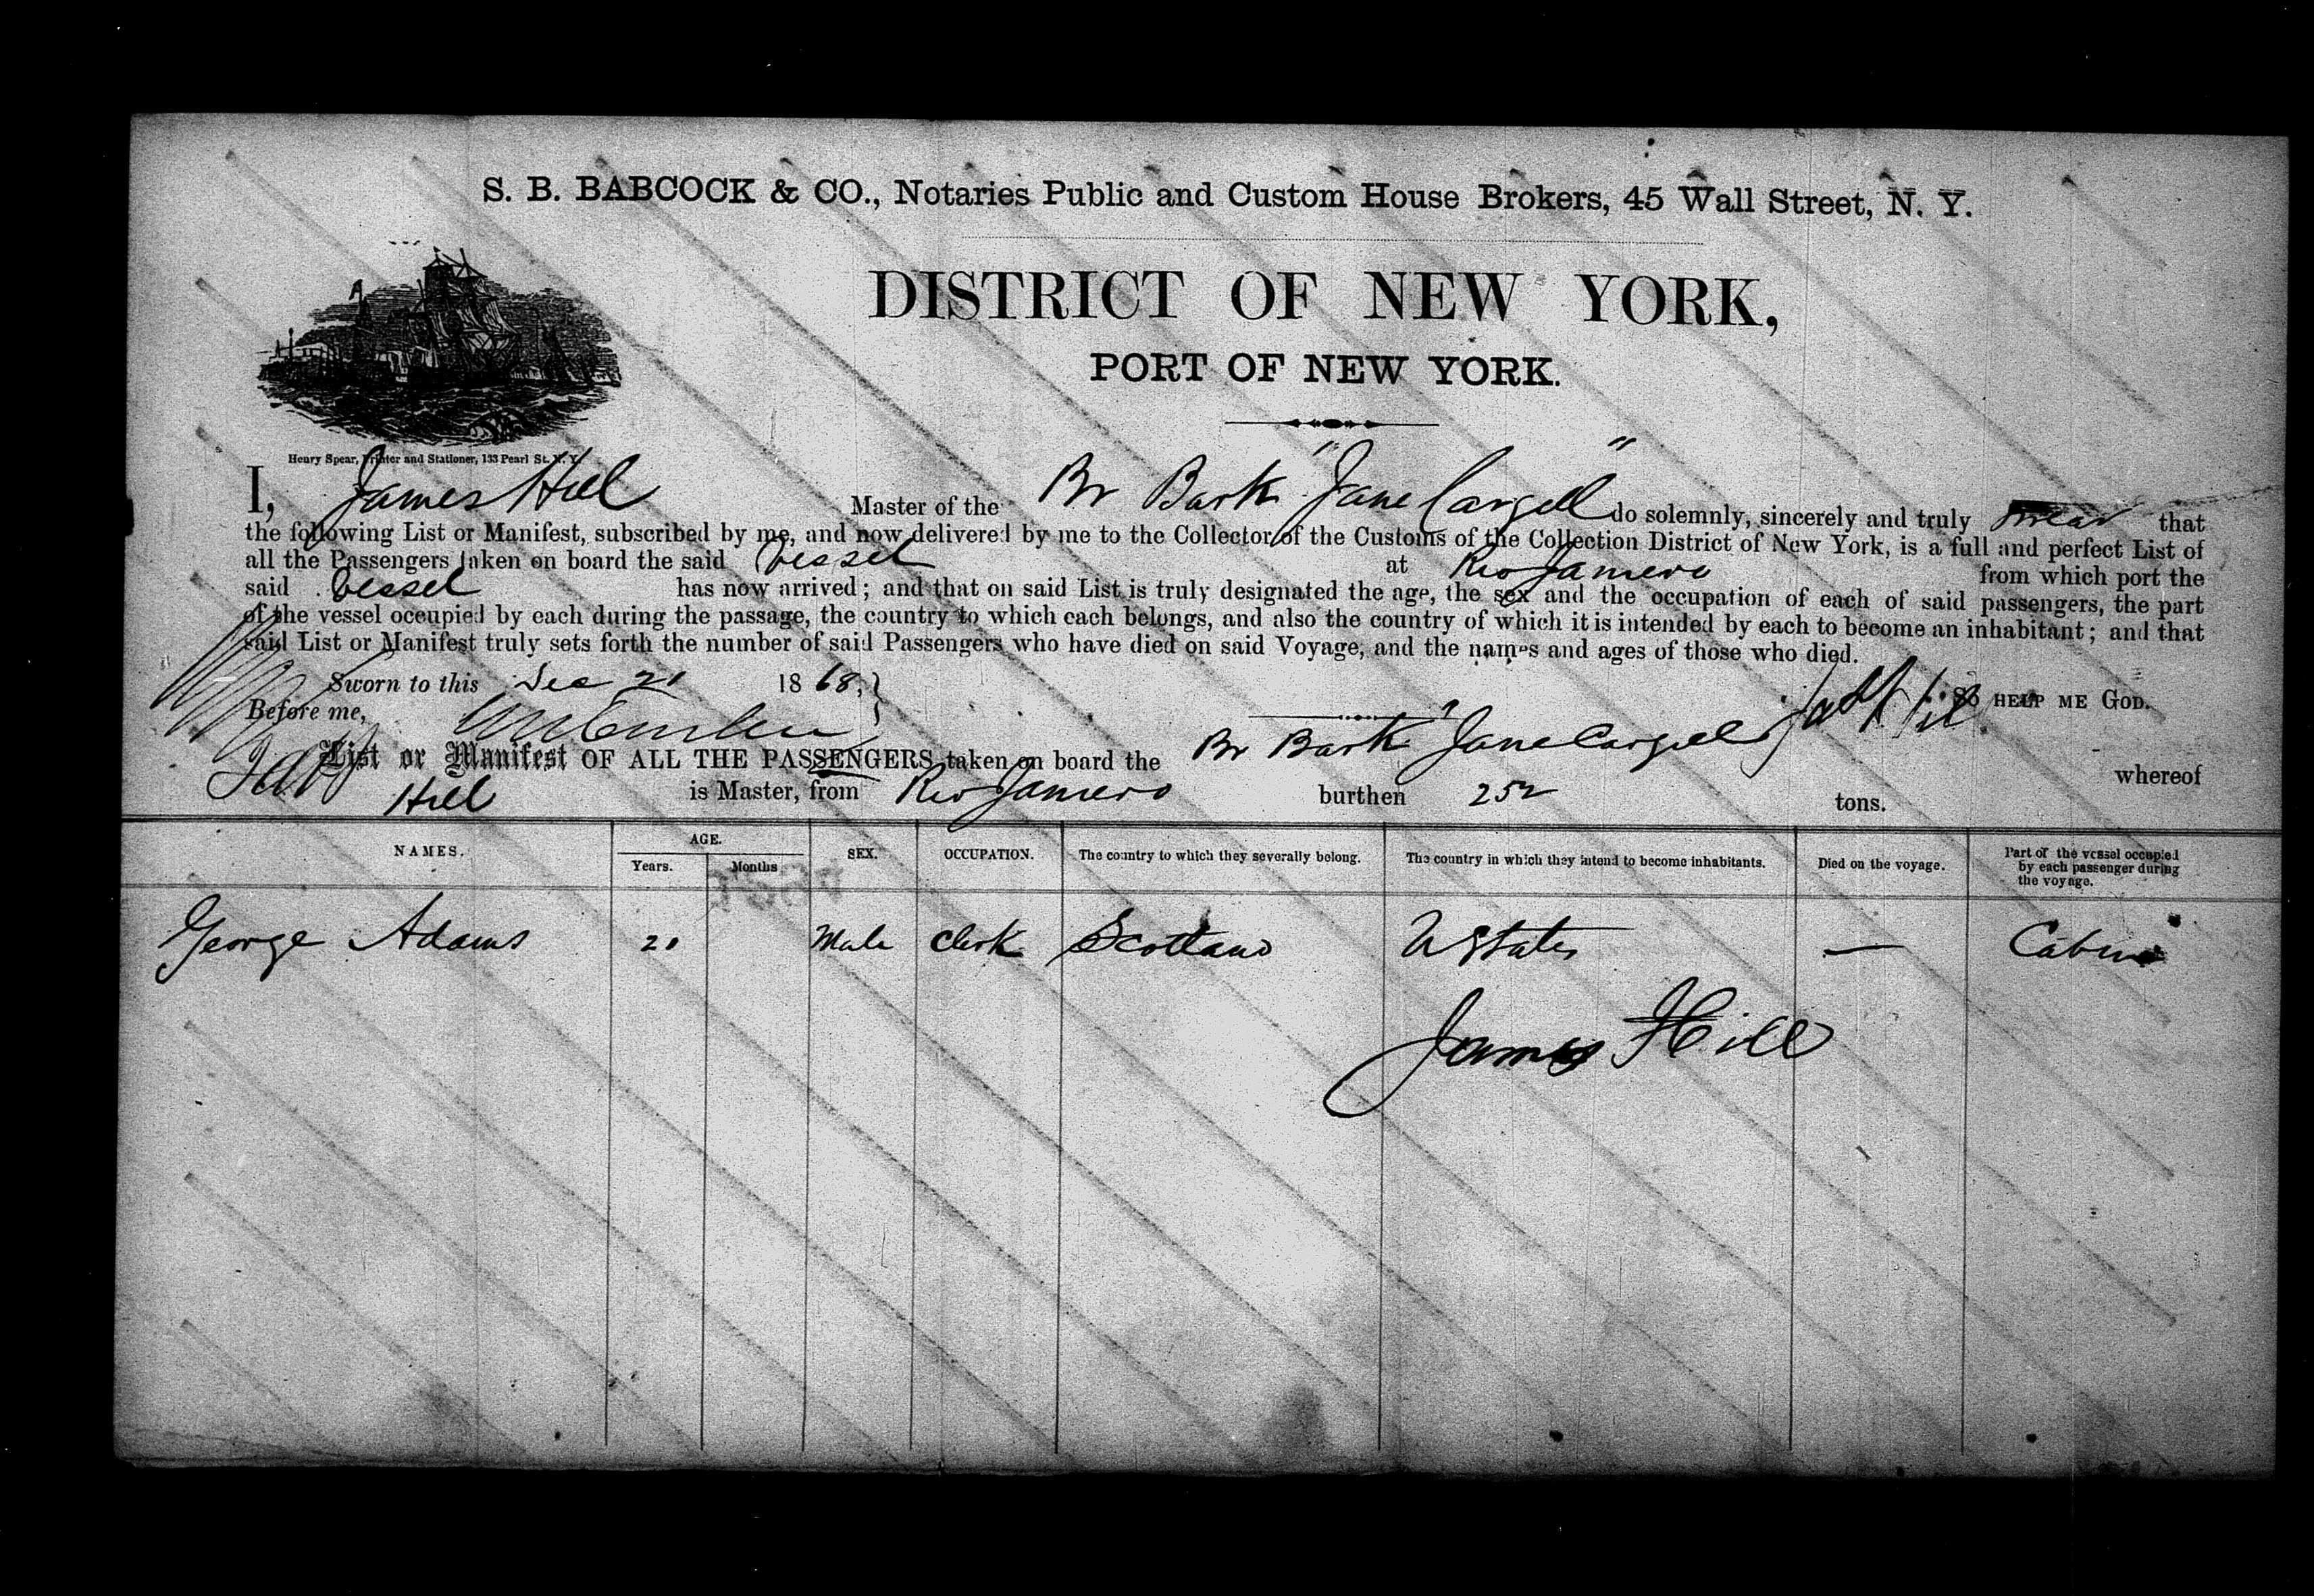 S. B. BABCOCK & CO., Notaries Public and Custom House Brokers, 45 Wall Street, N. Y.
DISTRICT OF NEW YORK,
PORT OF NEW YORK.
Henry Spear, Printer and Stationer, 133 Pearl St. N. Y.
I, James Hill Master of the Br Bark "Jane Cargill" do solemnly, sincerely and truly swear that
the following List or Manifest, subscribed by me, and now delivered by me to the Collector of the Customs of the Collection District of New York, is a full and perfect List of
all the Passengers taken on board the said Vessel at Rio Janeiro from which port the
said Vessel has now arrived; and that on said List is truly designated the age, the sex and the occupation of each of said passengers, the part
of the vessel occupied by each during the passage, the country to which each belongs, and also the country of which it is intended by each to become an inhabitant; and that
said List or Manifest truly sets forth the number of said Passengers who have died on said Voyage, and the names and ages of those who died.
Sworn to this Dec 21 1868, } SO HELP ME GOD.
Before me,
List or Manifest OF ALL THE PASSENGERS taken on board the Br Bark "Jane Cargill" whereof
Hill is Master, from Rio Janeiro burthen 252 tons.
NAMES. AGE. Years. Months SEX. OCCUPATION. The country to which they severally belong. The country in which they intend to become inhabitants. Died on the voyage. Part of the vessel occupied by each passenger during the voyage.
George Adams 21 Male Clerk Scotland U States — Cabin
James Hill